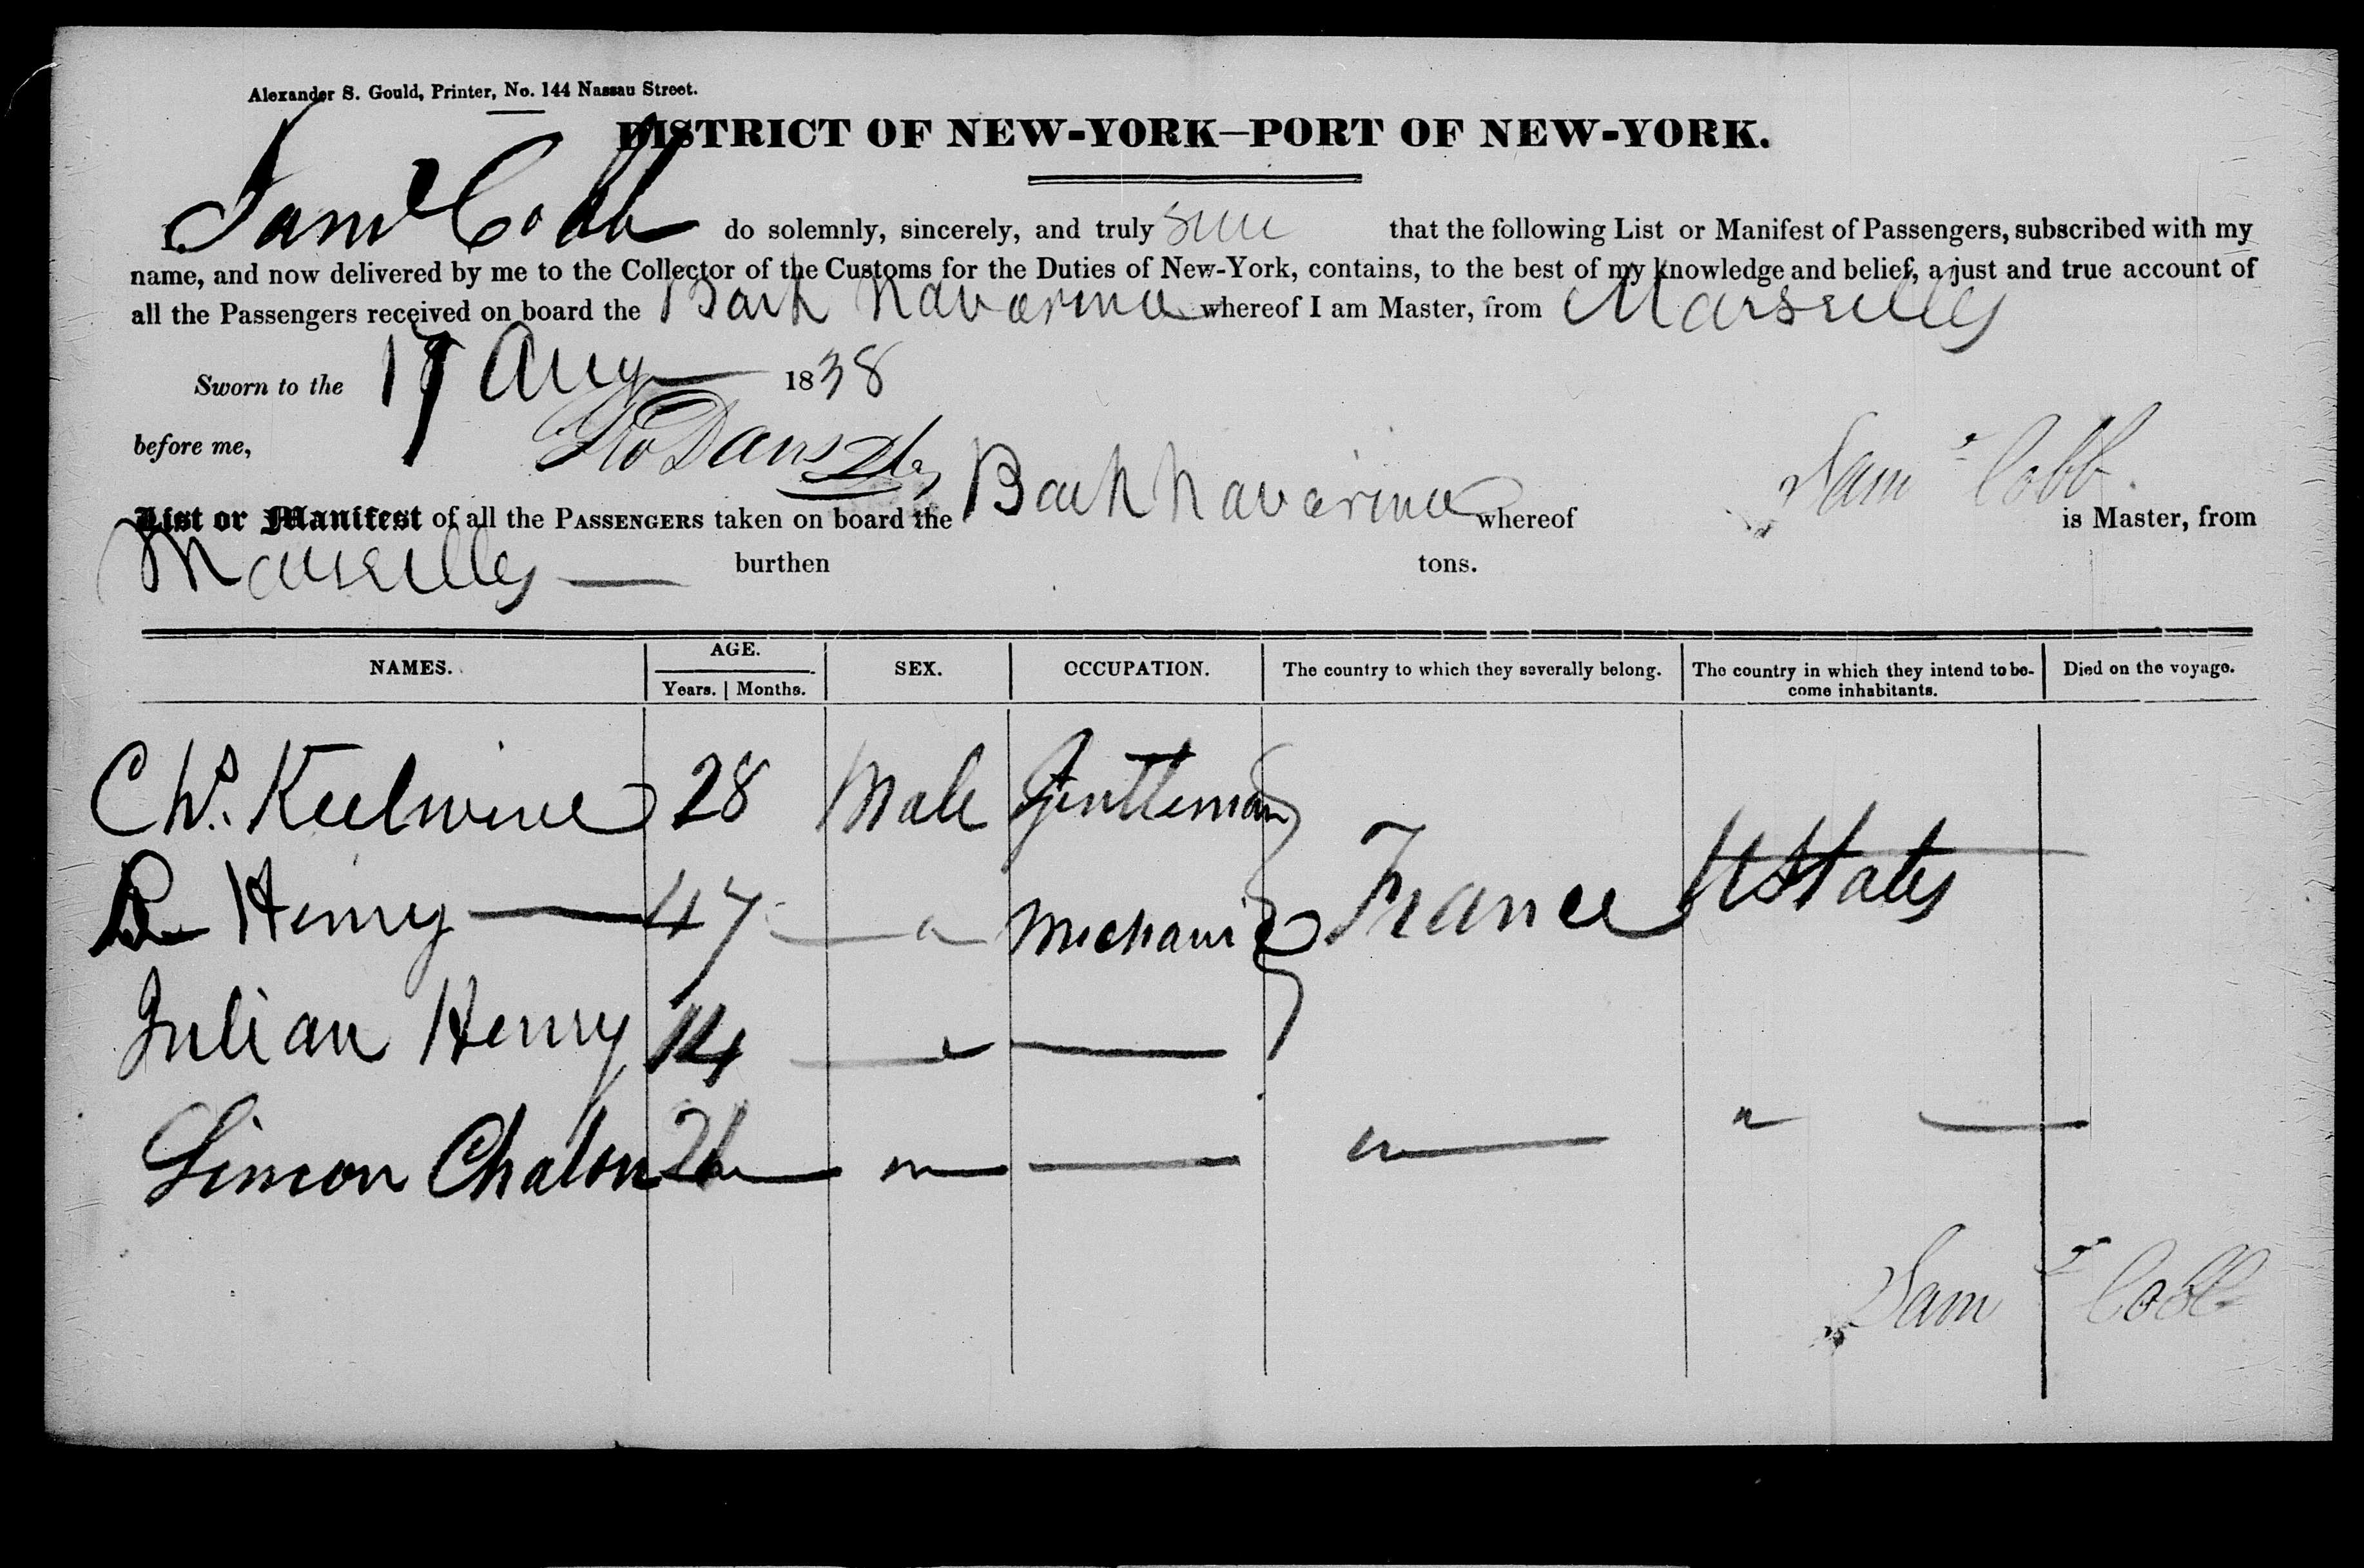 Alexander S. Gould, Printer, No. 144 Nassau Street.
DISTRICT OF NEW-YORK—PORT OF NEW-YORK.
I, Saml Cobb do solemnly, sincerely, and truly that the following List or Manifest of Passengers, subscribed with my
name, and now delivered by me to the Collector of the Customs for the Duties of New-York, contains, to the best of my knowledge and belief, a just and true account of
all the Passengers received on board the Bark Navarino whereof I am Master, from Marseilles
Sworn to the 17 Aug 1838
before me,
List or Manifest of all the PASSENGERS taken on board the Bark Navarino whereof Saml Cobb is Master, from
Marseilles — burthen tons.
NAMES. AGE. SEX. OCCUPATION. The country to which they severally belong. The country in which they intend to be- Died on the voyage.
Years. Months. come inhabitants.
28 Male Gentleman
Henry — 47 Mechanic France U States
Julian Henry 14
Simon Chalon 26
Saml Cobb